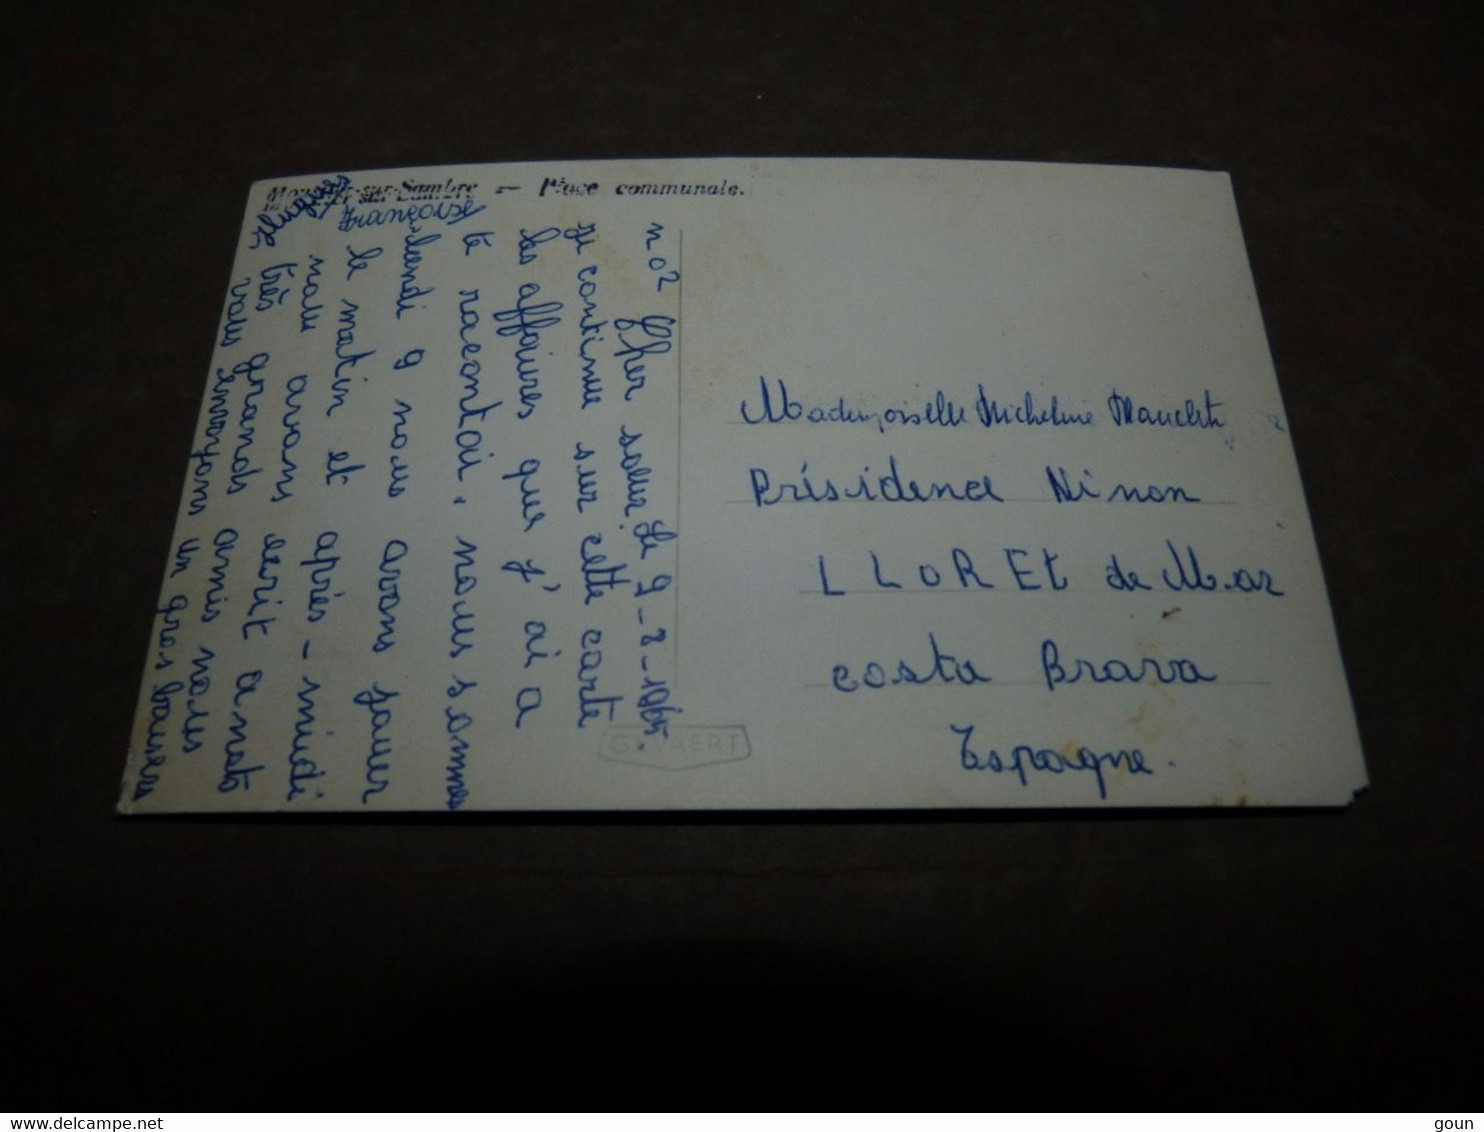 sur-Sambre — Place communale.
n o 2 Cher soeur. Le 9-8-1965.
je continue sur cette carte
les affaires que j'ai a
te racontai, nous sommes
lundi 9 nous avons jouer
le matin et après-midi
nous avons ecrit a nots
très grands amis nous
vous envoyons un gros baisers
Françoise
Mademoiselle Micheline
Présidence Ninon
LLORET de Mar
costa Brava
Espagne.
GEVAERT